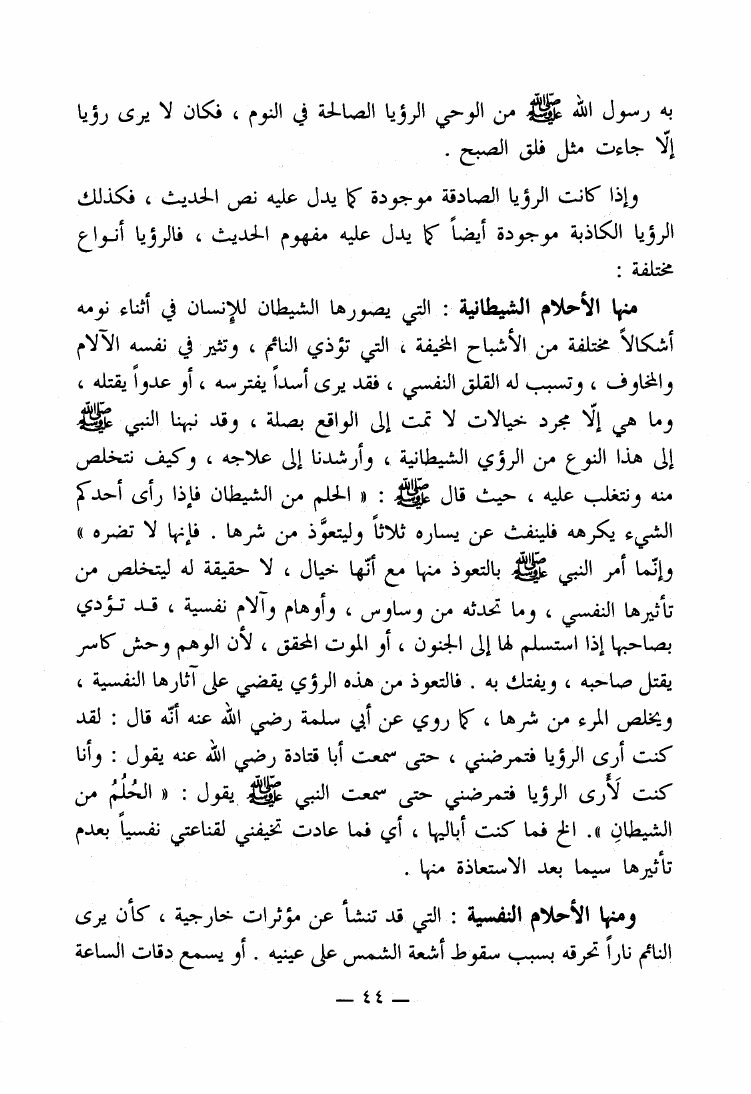 به رسول الله ﷺ من الوحي الرؤيا الصالحة في النوم ، فكان لا يرى رؤيا
إلّا جاءت مثل فلق الصبح .
وإذا كانت الرؤيا الصادقة موجودة كما يدل عليه نص الحديث ، فكذلك
الرؤيا الكاذبة موجودة أيضاً كما يدل عليه مفهوم الحديث ، فالرؤيا أنـواع
مختلفة :
منها الأحلام الشيطانية : التي يصورها الشيطان للإنسان في أثناء نومه
أشكالاً مختلفة من الأشباح المخيفة ، التي تؤذي النائم ، وتثير في نفسه الآلام
والمخاوف ، وتسبب له القلق النفسي ، فقد يرى أسداً يفترسه ، أو عدواً يقتله ،
وما هي إلّا مجرد خيالات لا تمت إلى الواقع بصلة ، وقد نبهنا النبي ﷺ
إلى هذا النوع من الرؤي الشيطانية ، وأرشدنا إلى علاجه ، وكيف نتخلص
منه ونتغلب عليه ، حيث قال ﷺ : « الحلم من الشيطان فإذا رأى أحدكم
الشيء يكرهه فلينفث عن يساره ثلاثاً وليتعوَّذ من شرها . فإنها لا تضره »
وإنّما أمر النبي ﷺ بالتعوذ منها مع أنّها خيال ، لا حقيقة له ليتخلص من
تأثيرها النفسي ، وما تحدثه من وساوس ، وأوهام وآلام نفسية ، قـد تـؤدي
بصاحبها إذا استسلم لها إلى الجنون ، أو الموت المحقق ، لأن الوهم وحش كاسر
يقتل صاحبه ، ويفتك به . فالتعوذ من هذه الرؤي يقضي على آثارها النفسية ،
ويخلص المرء من شرها ، كما روي عن أبي سلمة رضي الله عنه أنّه قال : لقد
كنت أرى الرؤيا فتمرضني ، حتى سمعت أبا قتادة رضي الله عنه يقول : وأنا
كنت لَأَرى الرؤيا فتمرضني حتى سمعت النبي ﷺ يقول : « الحُلُمُ من
الشيطانِ ». الخ فما كنت أباليها ، أي فما عادت تخيفني لقناعتي نفسياً بعدم
تأثيرها سيما بعد الاستعاذة منها .
ومنها الأحلام النفسية : التي قد تنشأ عن مؤثرات خارجية ، كأن يرى
النائم ناراً تحرقه بسبب سقوط أشعة الشمس على عينيه . أو يسمع دقات الساعة
— ٤٤ —